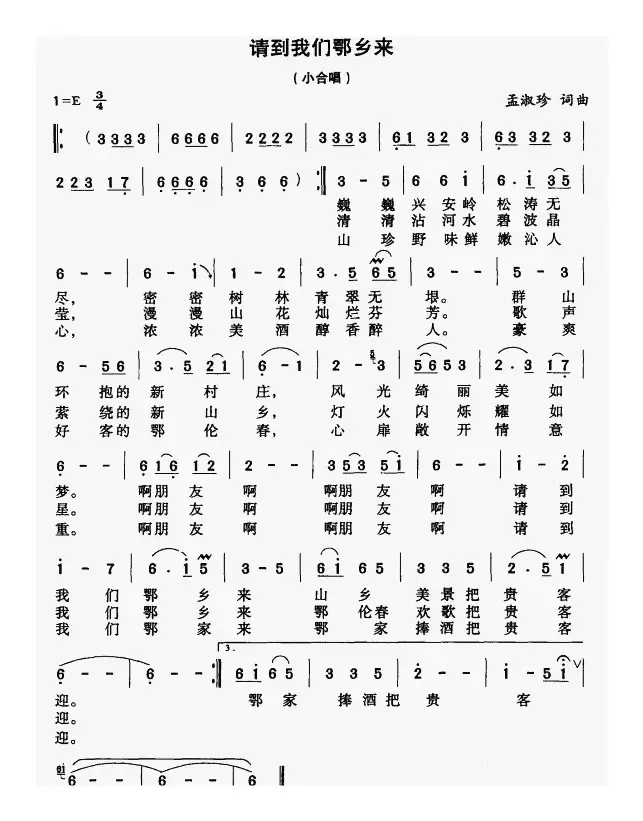 请到我们鄂乡来
（小合唱）
1=E 3/4 孟淑珍 词曲
‖: （3 3 3 3 | 6 6 6 6 | 2 2 2 2 | 3 3 3 3 | 6 1 3 2 3 | 6 3 3 2 3 |
2 2 3 1 7 | 6 6 6 6 | 3 6 6 ）:‖ 3 - 5 | 6 6 i | 6 . i 3 5 |
巍 巍 兴 安 岭 松 涛 无
清 清 沾 河 水 碧 波 晶
山 珍 野 味 鲜 嫩 沁 人
6 - - | 6 - i | 1 - 2 | 3 . 5 6 5 | 3 - - | 5 - 3 |
尽， 密 密 树 林 青 翠 无 垠。 群 山
莹， 漫 漫 山 花 灿 烂 芬 芳。 歌 声
心， 浓 浓 美 酒 醇 香 醉 人。 豪 爽
6 - 5 6 | 3 . 5 2 1 | 6 - 1 | 2 - 3 | 5 6 5 3 | 2 . 3 1 7 |
环 抱 的 新 村 庄， 风 光 绮 丽 美 如
萦 绕 的 新 山 乡， 灯 火 闪 烁 耀 如
好 客 的 鄂 伦 春， 心 扉 敞 开 情 意
6 - - | 6 1 6 1 2 | 2 - - | 3 5 3 5 i | 6 - - | i - 2 |
梦。 啊朋 友 啊 啊朋 友 啊 请 到
星。 啊朋 友 啊 啊朋 友 啊 请 到
重。 啊朋 友 啊 啊朋 友 啊 请 到
i - 7 | 6 . i 5 | 3 - 5 | 6 i 6 5 | 3 3 5 | 2 . 5 1 |
我 们 鄂 乡 来 山 乡 美 景 把 贵 客
我 们 鄂 乡 来 鄂 伦 春 欢 歌 把 贵 客
我 们 鄂 家 来 鄂 家 捧 酒 把 贵 客
3.
6 - - | 6 - - :‖ 6 i 6 5 | 3 3 5 | 2 - - | i - 5 i ∨ |
迎。 鄂 家 捧 酒 把 贵 客
迎。
迎。
6 - - | 6 - - | 6 - - | 6 - ‖